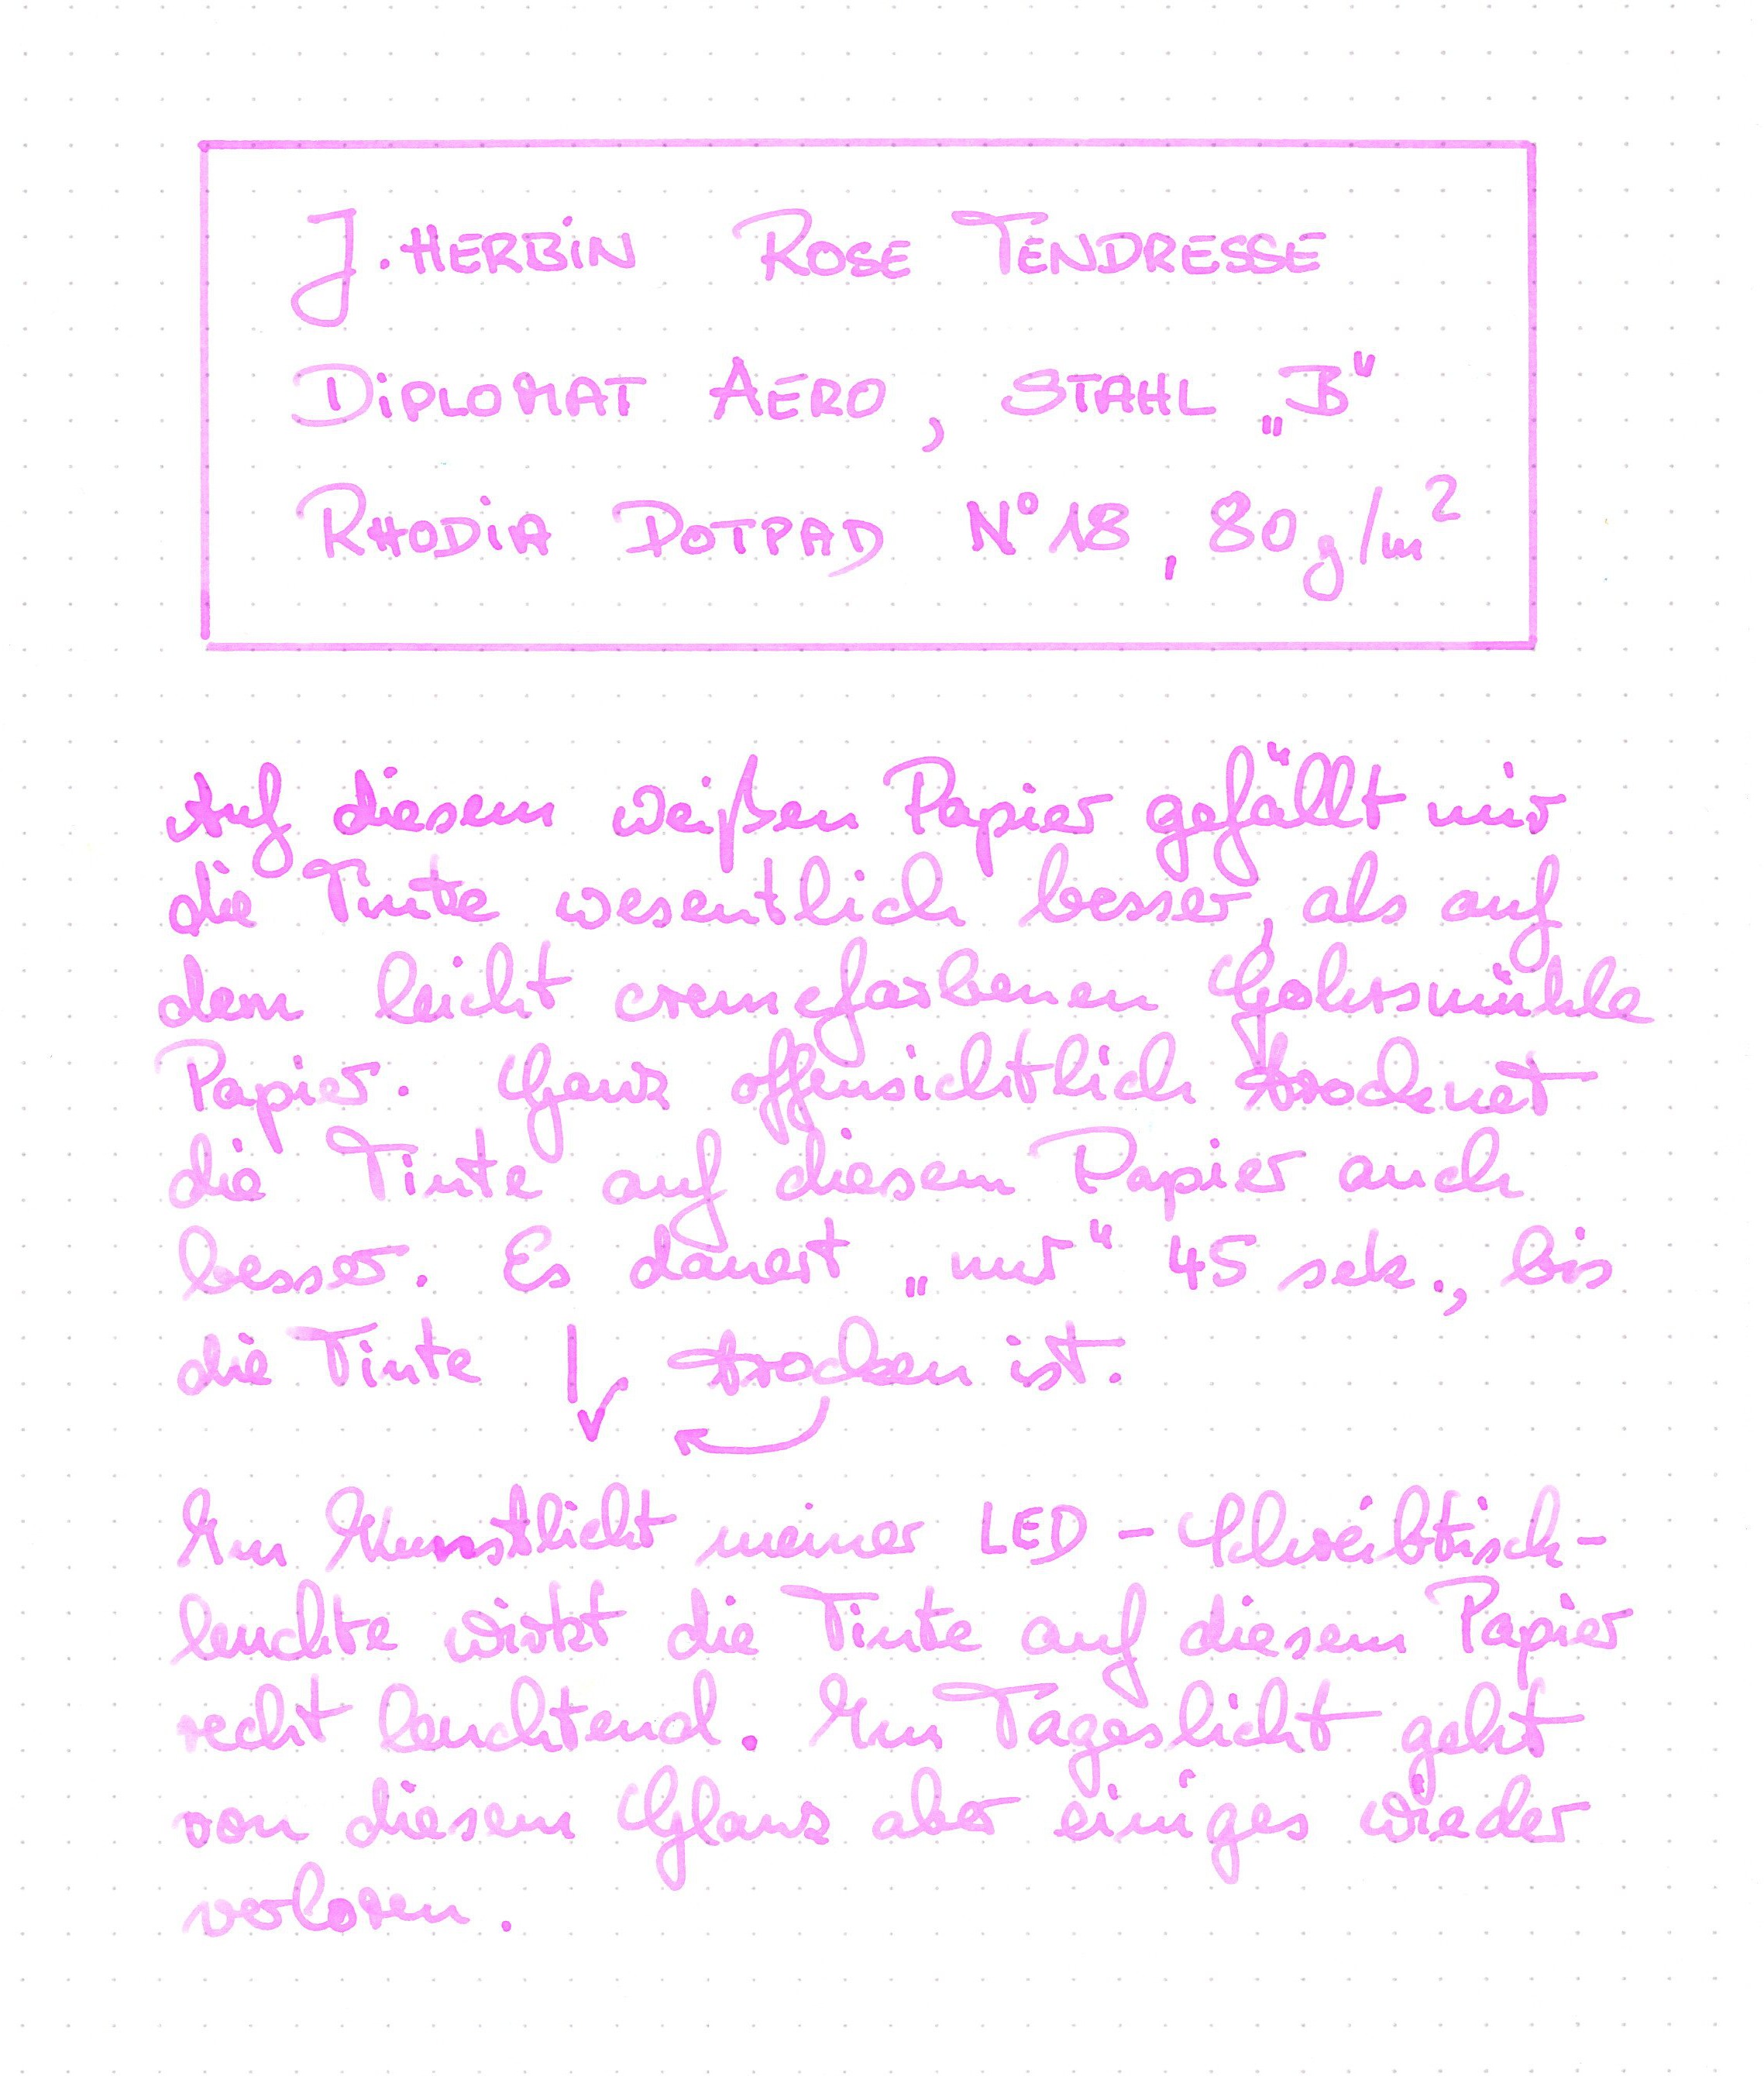 J. HERBiN ROSE TENDRESSE
DiPLOMAT AERO, STAHL „B“
RHODiA DOTPAD N° 18, 80 g/m²
Auf diesem weißen Papier gefällt mir
die Tinte wesentlich besser, als auf
dem leicht cremefarbenen Gohrsmühle
Papier. Ganz offensichtlich trocknet
die Tinte auf diesem Papier auch
besser. Es dauert „nur“ 45 sek., bis
die Tinte trocken ist.
Im Kunstlicht meiner LED - Schreibtisch-
leuchte wirkt die Tinte auf diesem Papier
recht leuchtend. Im Tageslicht geht
von diesem Glanz aber einiges wieder
verloren.